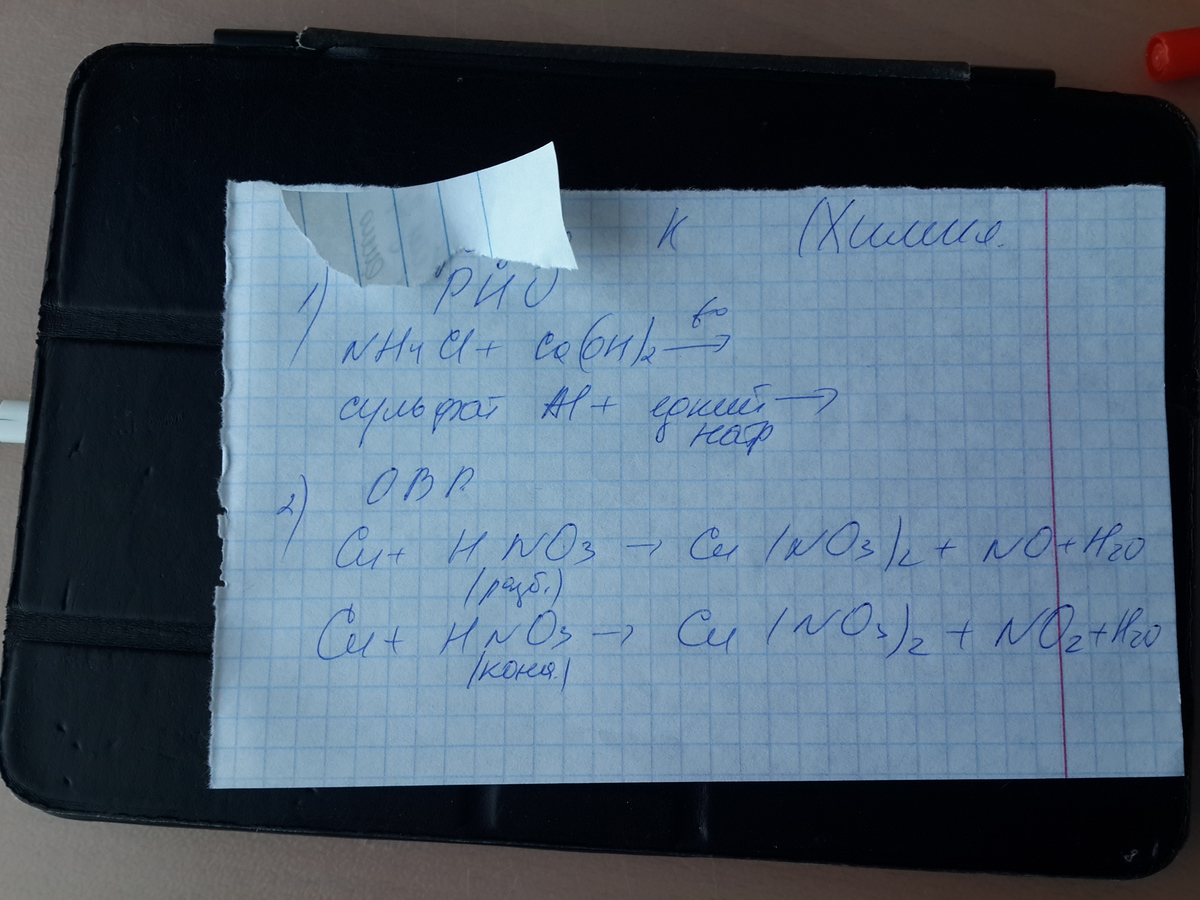 К (Химия.
1) РИО
NH4Cl + Ca(OH)2 t° →
сульфат Al + едкий →
натр
2) ОВР
Cu + HNO3 → Cu (NO3)2 + NO + H2O
(разб.)
Cu + HNO3 → Cu (NO3)2 + NO2 + H2O
(конц.)